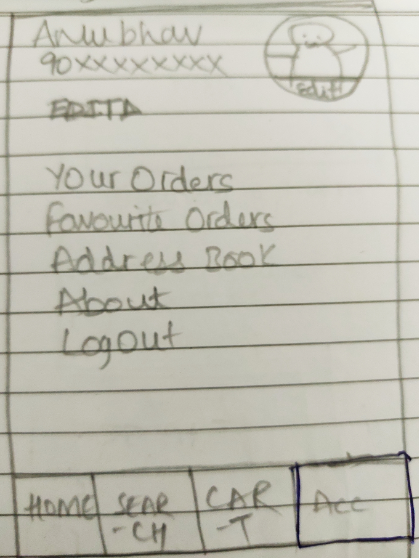 Anubhav
90xxxxxxxx
Edit
EDIT
Your Orders
Favourite Orders
Address Book
About
Logout
HOME SEAR CAR Acc
-CH -T